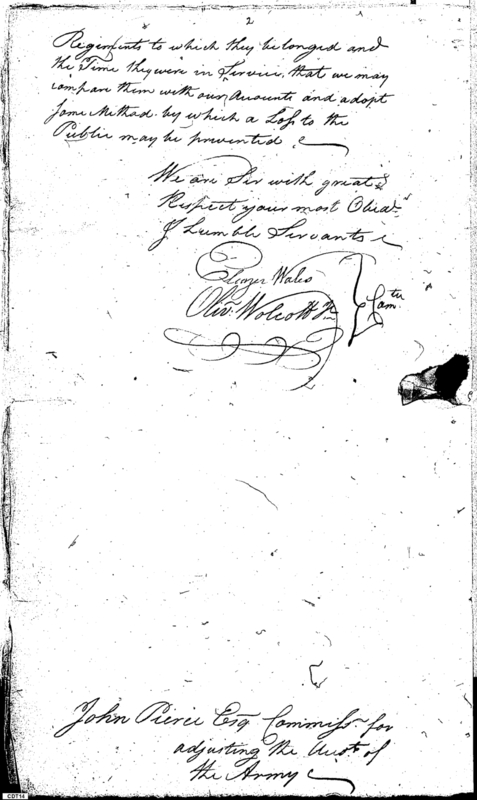 2
Regiments to which they belonged and
the Time they were in Service, that we may
compare them with our Accounts and adopt
some Method by which a Loss to the
Public may be prevented
We are Sir with great
Respect your most Obedt
& humble Servants
Eleazer Wales
Olivr Wolcott Jr
Comtee
John Pierce Esq Commissr for
adjusting the Accts of
the Army
CDT14